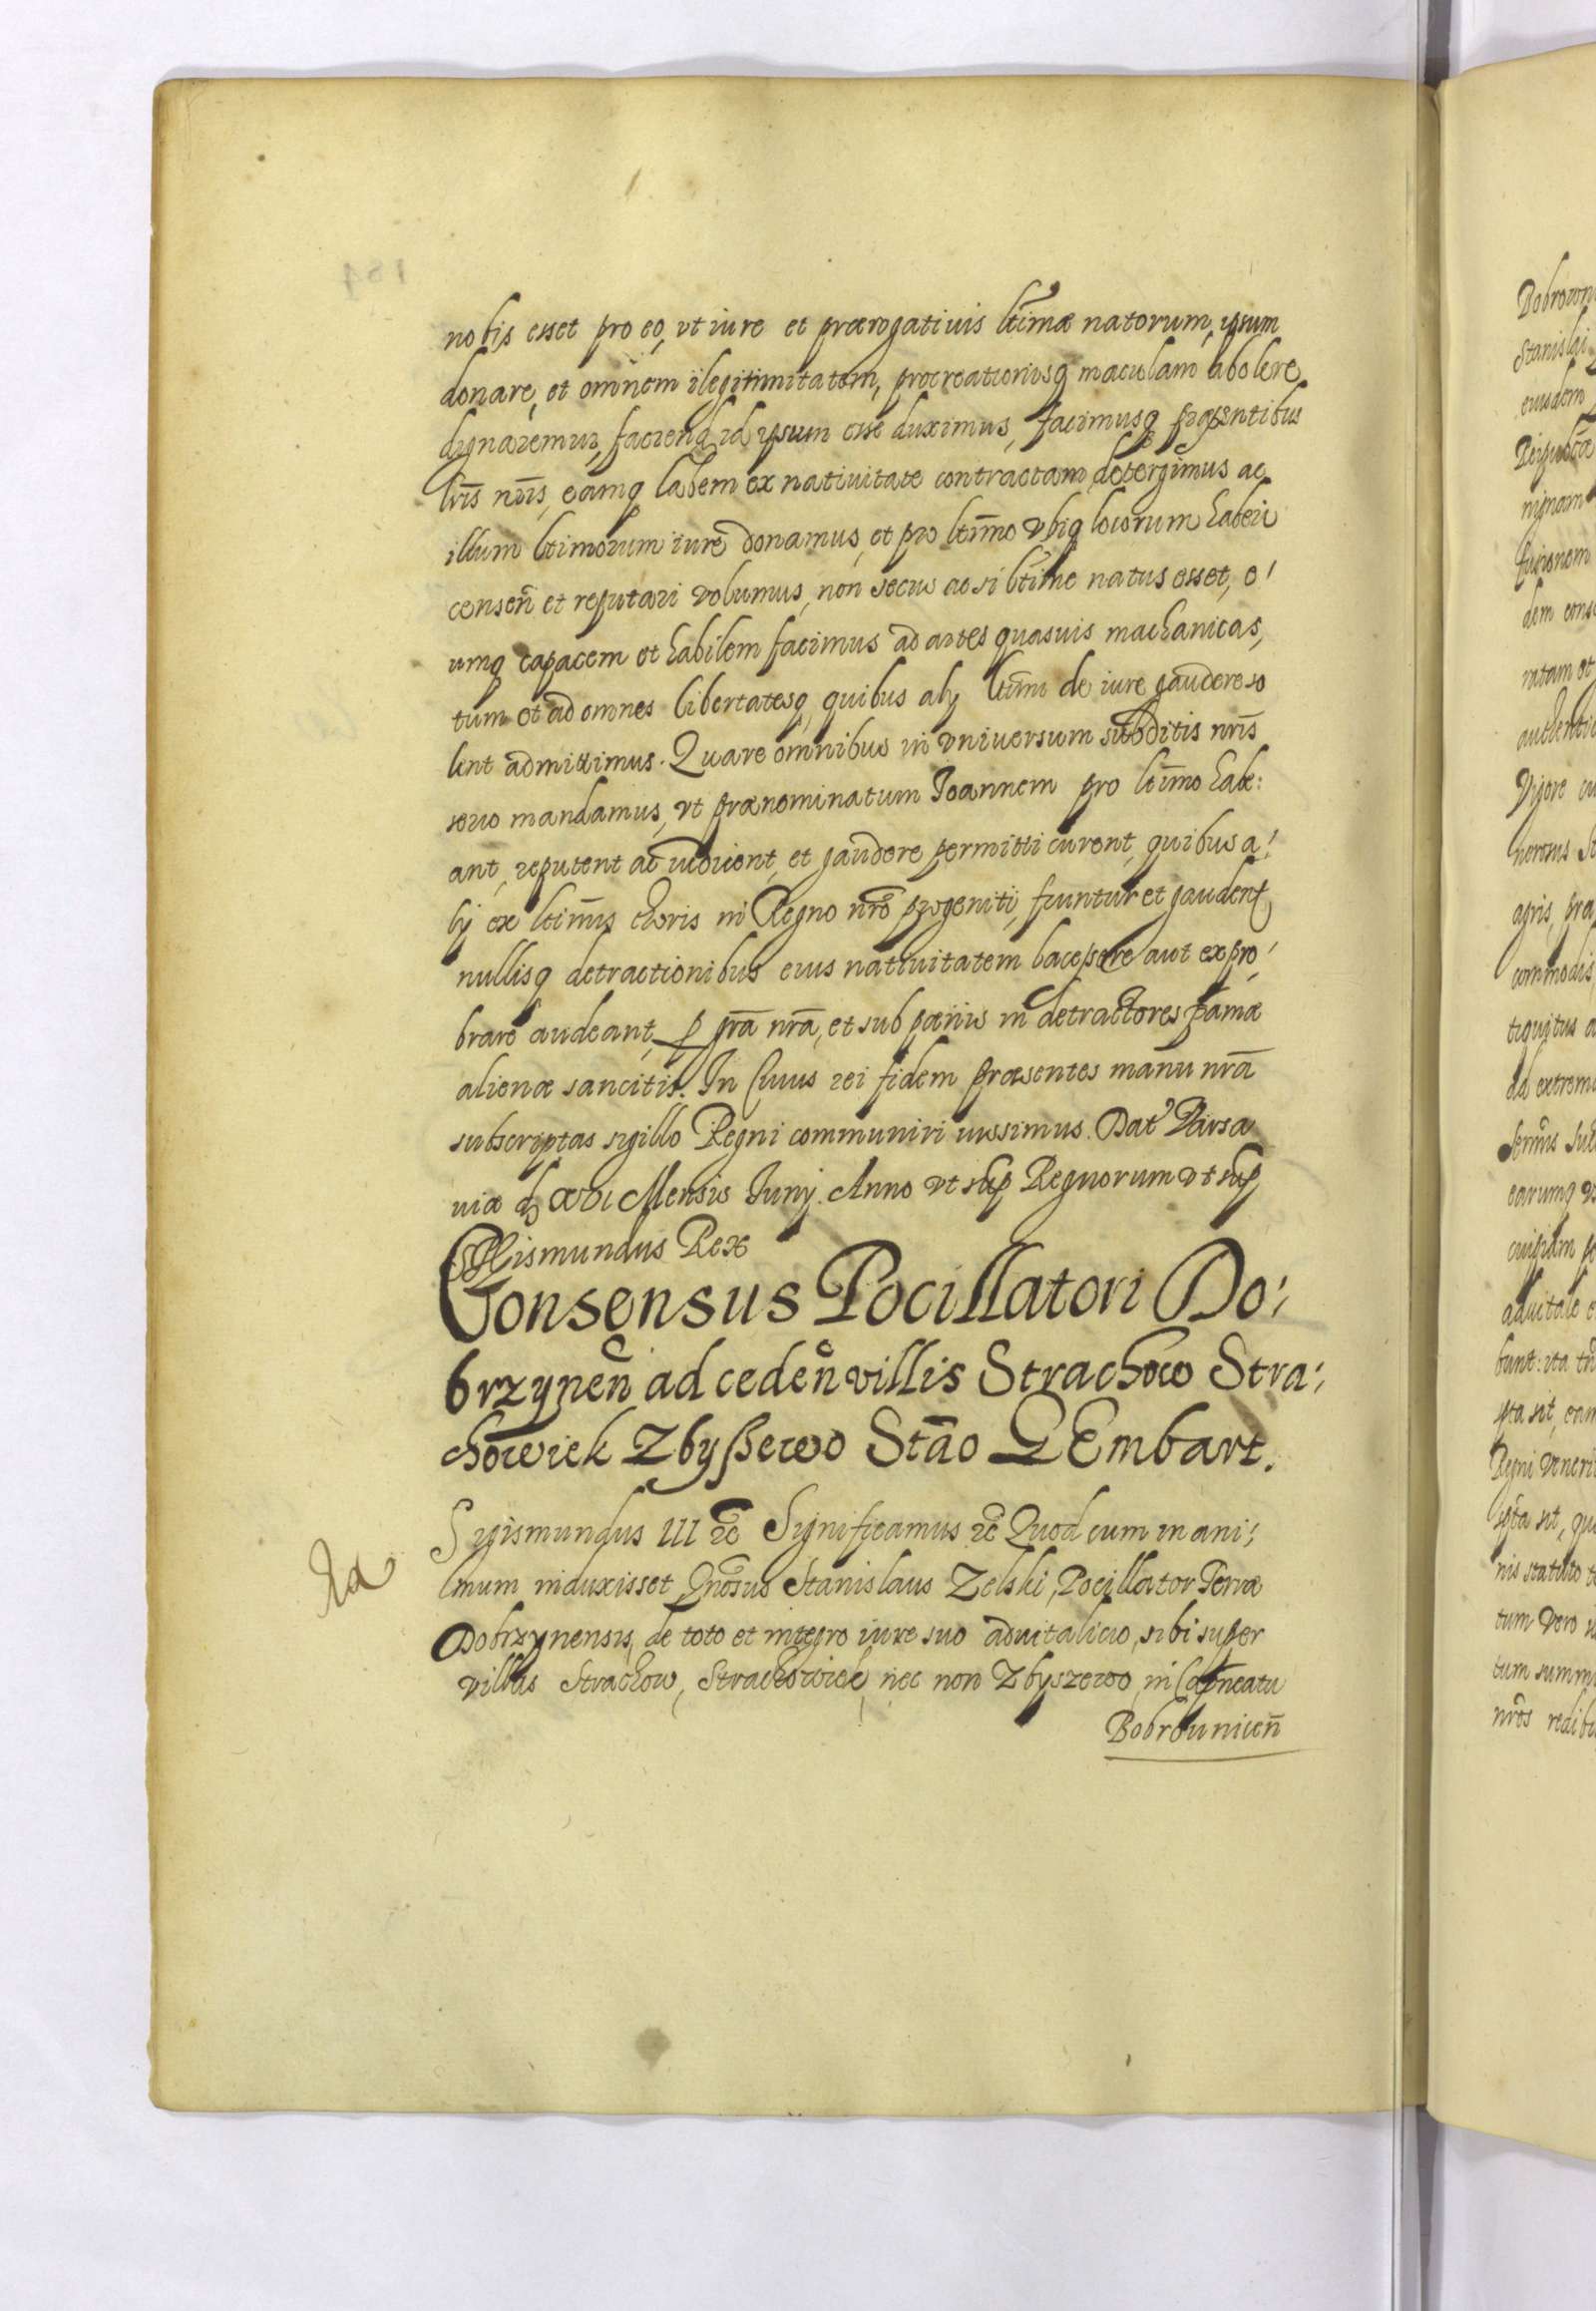 nobis esset pro eo, vt iure et prærogatiuis ltimæ natorum, ipsum
donare, et omnem ilegitimitatem, procreationisq maculam abolere
dignaremur, faciend id ipsum esse duximus, facimusq præsentibus
lris nris, eamq labem ex natiuitate contractam detergimus ac
illum ltimorum iure donamus, et pro ltimo vbiq locorum haberi
censeri et reputari volumus, non secus ac si ltime natus esset, e
umq capacem et habilem facimus ad artes quasuis machanicas,
tum et ad omnes libertatesq, quibus alij ltimi de iure gaudere so
lent admittimus. Quare omnibus in vniuersum subditis nris
serio mandamus, vt prænominatum Ioannem pro ltimo habe:
ant, reputent ac iudicent, et gaudere permitti curent, quibus a:
lij ex ltimis thoris in Regno nro progeniti, fruuntur et gaudent
nullisq detractionibus eius natiuitatem lacessere aut expro
brare audeant, p gra nra, et sub pænis in detractores famæ
alienæ sancitis. In Cuius rei fidem præsentes manu nra
subscriptas sigillo Regni communiri iussimus. Dat Varsa
uiæ d xvi Mensis Iunij. Anno vt sup Regnorum vt sup
Sigismundus Rex
Consensus Pocillatori Do:
brzynen ad ceden villis Strachowo Stra:
chowiek Zbyßewo Stao GEmbart.
Sigismundus III rc Significamus rc Quod cum in ani:
mum induxisset Gnosus Stanislaus Zelski, Pocillator Terræ
Dobrzynensis, de toto et integro iure suo aduitalicio, sibi super
villas Strachow, Strachowiek, nec non Zbyszewo, in Capneatu
Bobrounicen